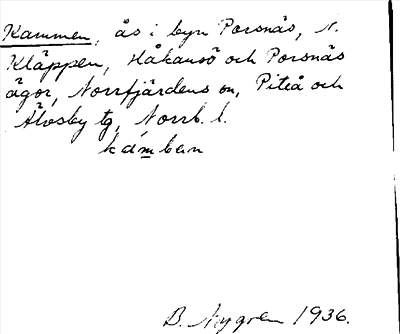 Kammen, ås i byn Porsnäs, N.
Kläppen, Håkansö och Porsnäs
ägor, Norrfjärdens sn, Piteå och
Älvsby tg, Norrb. l.
kámben
B. Nygren 1936.